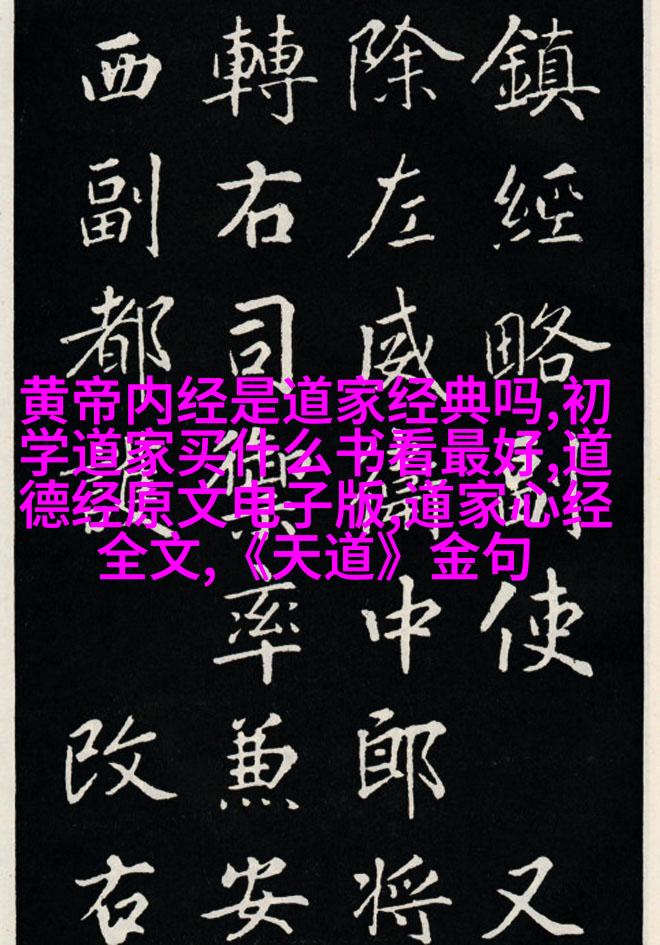 鎮經略副使 又
除左威衛中郎將
轉右司禦率兼安
西副都護 改右
黄帝内经是道家经典吗,初
学道家买什么书看最好,道
德经原文电子版,道家心经
全文,《天道》金句